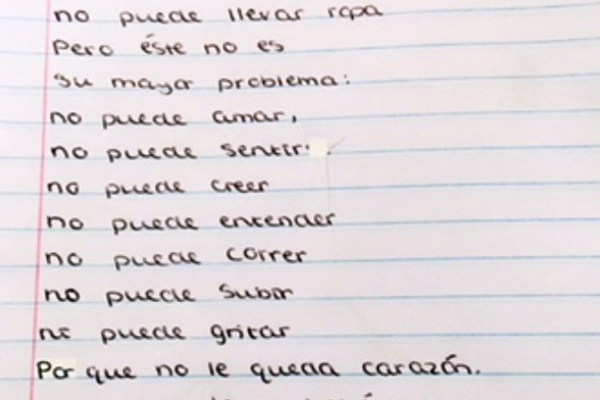 no puede llevar ropa
Pero éste no es
su mayor problema:
no puede amar,
no puede sentir
no puede creer
no puede entender
no puede correr
no puede subir
ni puede gritar
Por que no le queda carazón.